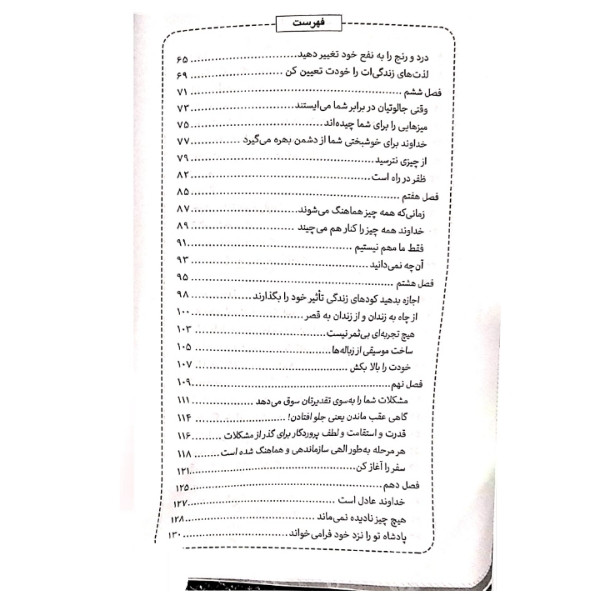 فهرست
درد و رنج را به نفع خود تغییر دهید ۶۵
لذت‌های زندگی‌ات را خودت تعیین کن ۶۹
فصل ششم ۷۱
وقتی جالوتیان در برابر شما می‌ایستند ۷۳
میزهایی را برای شما چیده‌اند ۷۵
خداوند برای خوشبختی شما از دشمن بهره می‌گیرد ۷۷
از چیزی نترسید ۷۹
ظفر در راه است ۸۲
فصل هفتم ۸۵
زمانی‌که همه چیز هماهنگ می‌شوند ۸۷
خداوند همه چیز را کنار هم می‌چیند ۸۹
فقط ما مهم نیستیم ۹۱
آن‌چه نمی‌دانید ۹۳
فصل هشتم ۹۵
اجازه بدهید کودهای زندگی تأثیر خود را بگذارند ۹۸
از چاه به زندان و از زندان به قصر ۱۰۰
هیچ تجربه‌ای بی‌ثمر نیست ۱۰۳
ساخت موسیقی از زباله‌ها ۱۰۵
خودت را بالا بکش ۱۰۷
فصل نهم ۱۰۹
مشکلات شما را به‌سوی تقدیرتان سوق می‌دهد ۱۱۱
گاهی عقب ماندن یعنی جلو افتادن! ۱۱۴
قدرت و استقامت و لطف پروردگار برای گذر از مشکلات ۱۱۶
هر مرحله به‌طور الهی سازماندهی و هماهنگ شده است ۱۱۸
سفر را آغاز کن ۱۲۱
فصل دهم ۱۲۵
خداوند عادل است ۱۲۷
هیچ چیز نادیده نمی‌ماند ۱۲۸
پادشاه تو را نزد خود فرامی‌خواند ۱۳۰